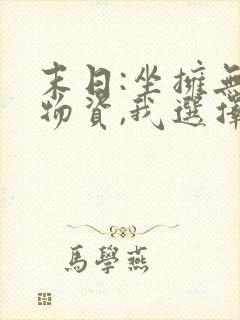 末日:坐擁無
物資,我選擇
馬學燕